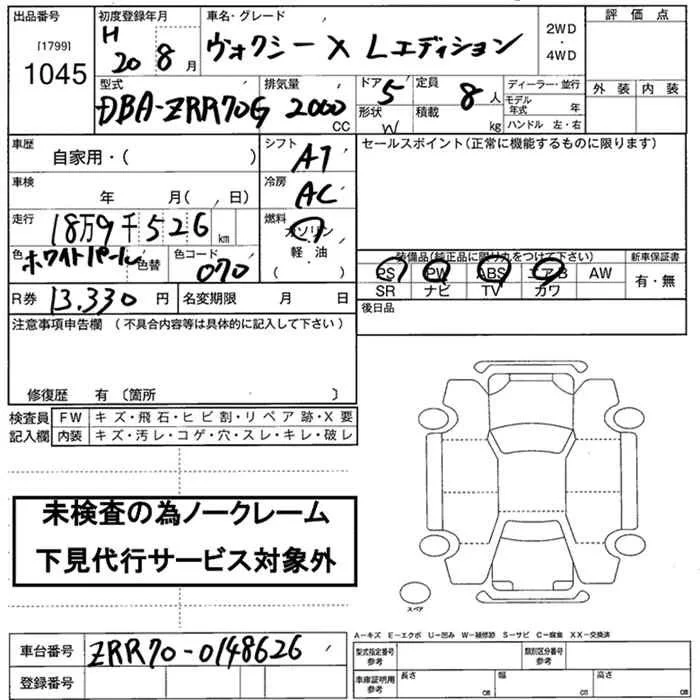 出品番号 初度登録年月 車名・グレード 評価点
[1799]
1045
H 20 8月
ヴォクシー X Lエディション
2WD
・
4WD
型式 排気量 ドア 定員 ディーラー・並行 外装 内装
DBA-ZRR70G 2000 CC
5 8人
モデル年式 年
形状 W 積載 kg ハンドル 左・右
車歴 シフト セールスポイント(正常に機能するものに限ります)
自家用・( ) AT
車検 冷房
年 月( , 日) AC
走行 燃料
18万9千526km ガソリン
軽・油
( )
色 色替 色コード
ホワイトパール 070
装備品(純正品に限り丸をつけて下さい) 新車保証書
PS PW ABS エアB AW 有・無
SR ナビ TV カワ
R券 13.330 円 名変期限 月 日 後日品
注意事項申告欄(不具合内容等は具体的に記入して下さい)
修復歴 有〔箇所 〕
検査員 FW キズ・飛石・ヒビ割・リペア跡・X要
記入欄 内装 キズ・汚レ・コゲ・穴・スレ・キレ・破レ
未検査の為ノークレーム
下見代行サービス対象外
スペア
A-キズ E-エクボ U-凹み W-補修跡 S-サビ C-腐食 XX-交換済
車台番号 ZRR70-0148626
型式指定番号 参考 類別区分番号 参考
登録番号
車庫証明用 参考 長さ cm 幅 cm 高さ cm